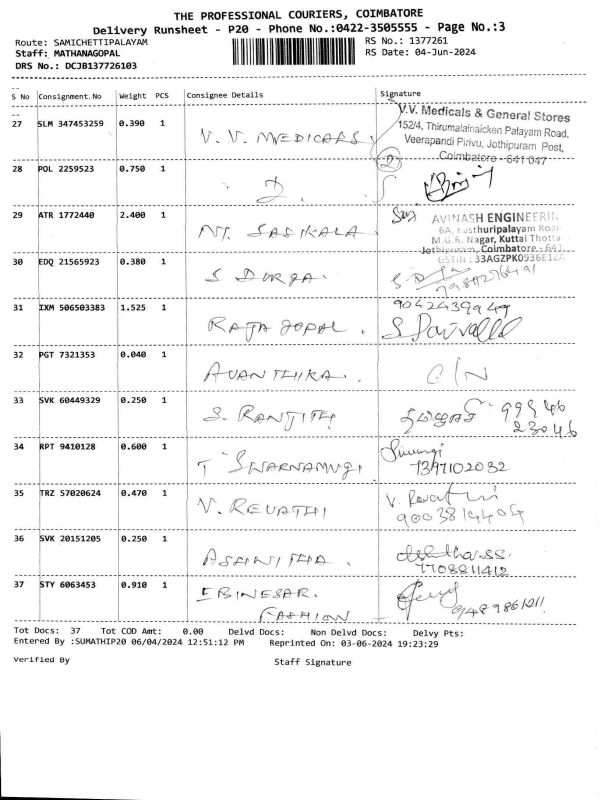 THE PROFESSIONAL COURIERS, COIMBATORE
Delivery Runsheet - P20 - Phone No.:0422-3505555 - Page No.:3
Route: SAMICHETTIPALAYAM
RS No.: 1377261
Staff: MATHANAGOPAL
RS Date: 04-Jun-2024
DRS No.: DCJB137726103
S No Consignment.No Weight PCS Consignee Details Signature
27 SLM 347453259 0.390 1 V.V. MEDICALS
V.V. Medicals & General Stores
152/4, Thirumalainaicken Palayam Road,
Veerapandi Pirivu, Jothipuram Post,
Coimbatore - 641 047
28 POL 2259523 0.750 1
29 ATR 1772440 2.400 1 NT. SASIKALA
AVINASH ENGINEERIN
6A, Kasthuripalayam Road
M.G.R. Nagar, Kuttai Thotta
Jothipuram, Coimbatore - 641
GSTIN : 33AGZPK0936E1ZA
30 EDQ 21565923 0.380 1 S DURGA.
31 IXM 506503383 1.525 1 RAJAGOPAL.
9042439949
32 PGT 7321353 0.040 1 AVANTHIKA.
C/N
33 SVK 60449329 0.250 1 S. RANJITH
99946
23046
34 RPT 9410128 0.600 1 T SWARNAMUGI
7397102032
35 TRZ 57020624 0.470 1 V. REVATHI
V. Revathi
9003814404
36 SVK 20151205 0.250 1 ASHWITHA.
7708811412
37 STY 6063453 0.910 1 EBINESAR.
FASHION
9489861211
Tot Docs: 37 Tot COD Amt: 0.00 Delvd Docs: Non Delvd Docs: Delvy Pts:
Entered By :SUMATHIP20 06/04/2024 12:51:12 PM Reprinted On: 03-06-2024 19:23:29
Verified By Staff Signature